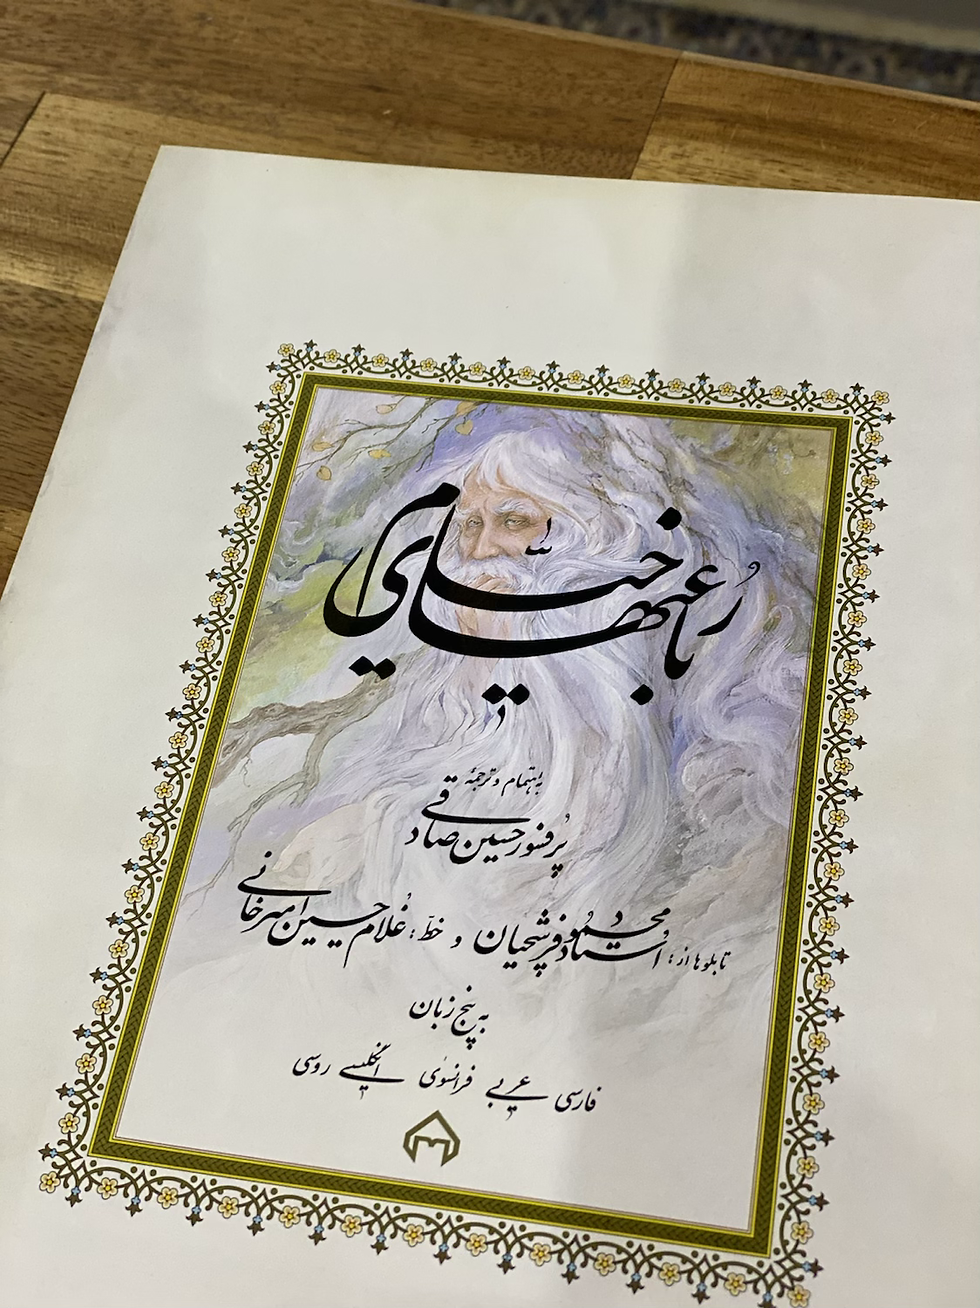 رُباعیهای خیّام
به اهتمام و ترجمهٔ
پُرفسور حسین صادقی
تابلوها از: اُستاد محمود فرشچیان و خطّ: غُلامحسین امیرخانی
به پنج زبان
فارسی عربی فرانسوی انگلیسی روسی